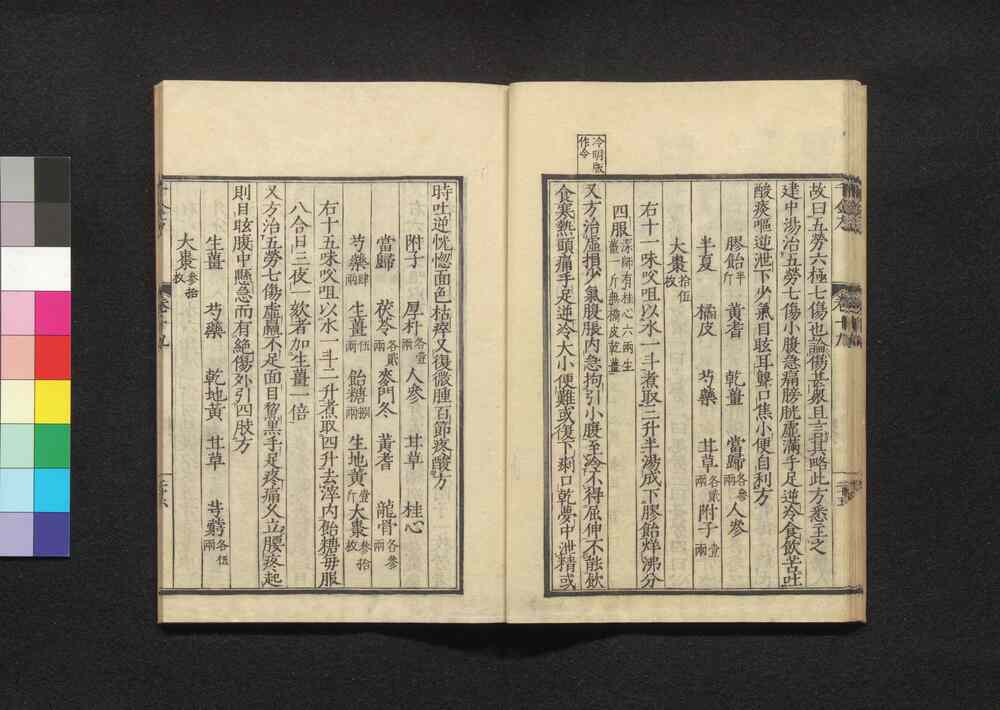 冷明版
作今
故曰五勞六極七傷也論傷甚衆且言其略此方悉主之
建中湯治五勞七傷小腹急痛膀胱虛滿手足逆冷食飲苦吐
酸痰嘔逆泄下少氣目眩耳聾口焦小便自利方
膠飴半斤 黃耆 乾薑 當歸各參兩 人參
半夏 橘皮 芍藥 甘草各貳兩 附子壹兩
大棗拾伍枚
右十一味㕮咀以水一斗煮取三升半湯成下膠飴烊沸分
四服深師有桂心六兩生薑一斤無橘皮乾薑
又方治虛損少氣腹脹內急拘引小腹至冷不得屈伸不能飲
食寒熱頭痛手足逆冷大小便難或復下痢口乾夢中泄精或
時吐逆恍惚面色枯瘁又復微腫百節疼酸方
附子 厚朴各壹兩 人參 甘草 桂心
當歸 茯苓各貳兩 麥門冬 黃耆 龍骨各參兩
芍藥肆兩 生薑伍兩 飴糖捌兩 生地黃壹斤 大棗參拾枚
右十五味㕮咀以水一斗二升煮取四升去滓內飴糖每服
八合日三夜一欬者加生薑一倍
又方治五勞七傷虛羸不足面目黧黑手足疼痛久立腰疼起
則目眩腹中懸急而有絕傷外引四肢方
生薑 芍藥 乾地黃 甘草 芎藭各伍兩
大棗參拾枚